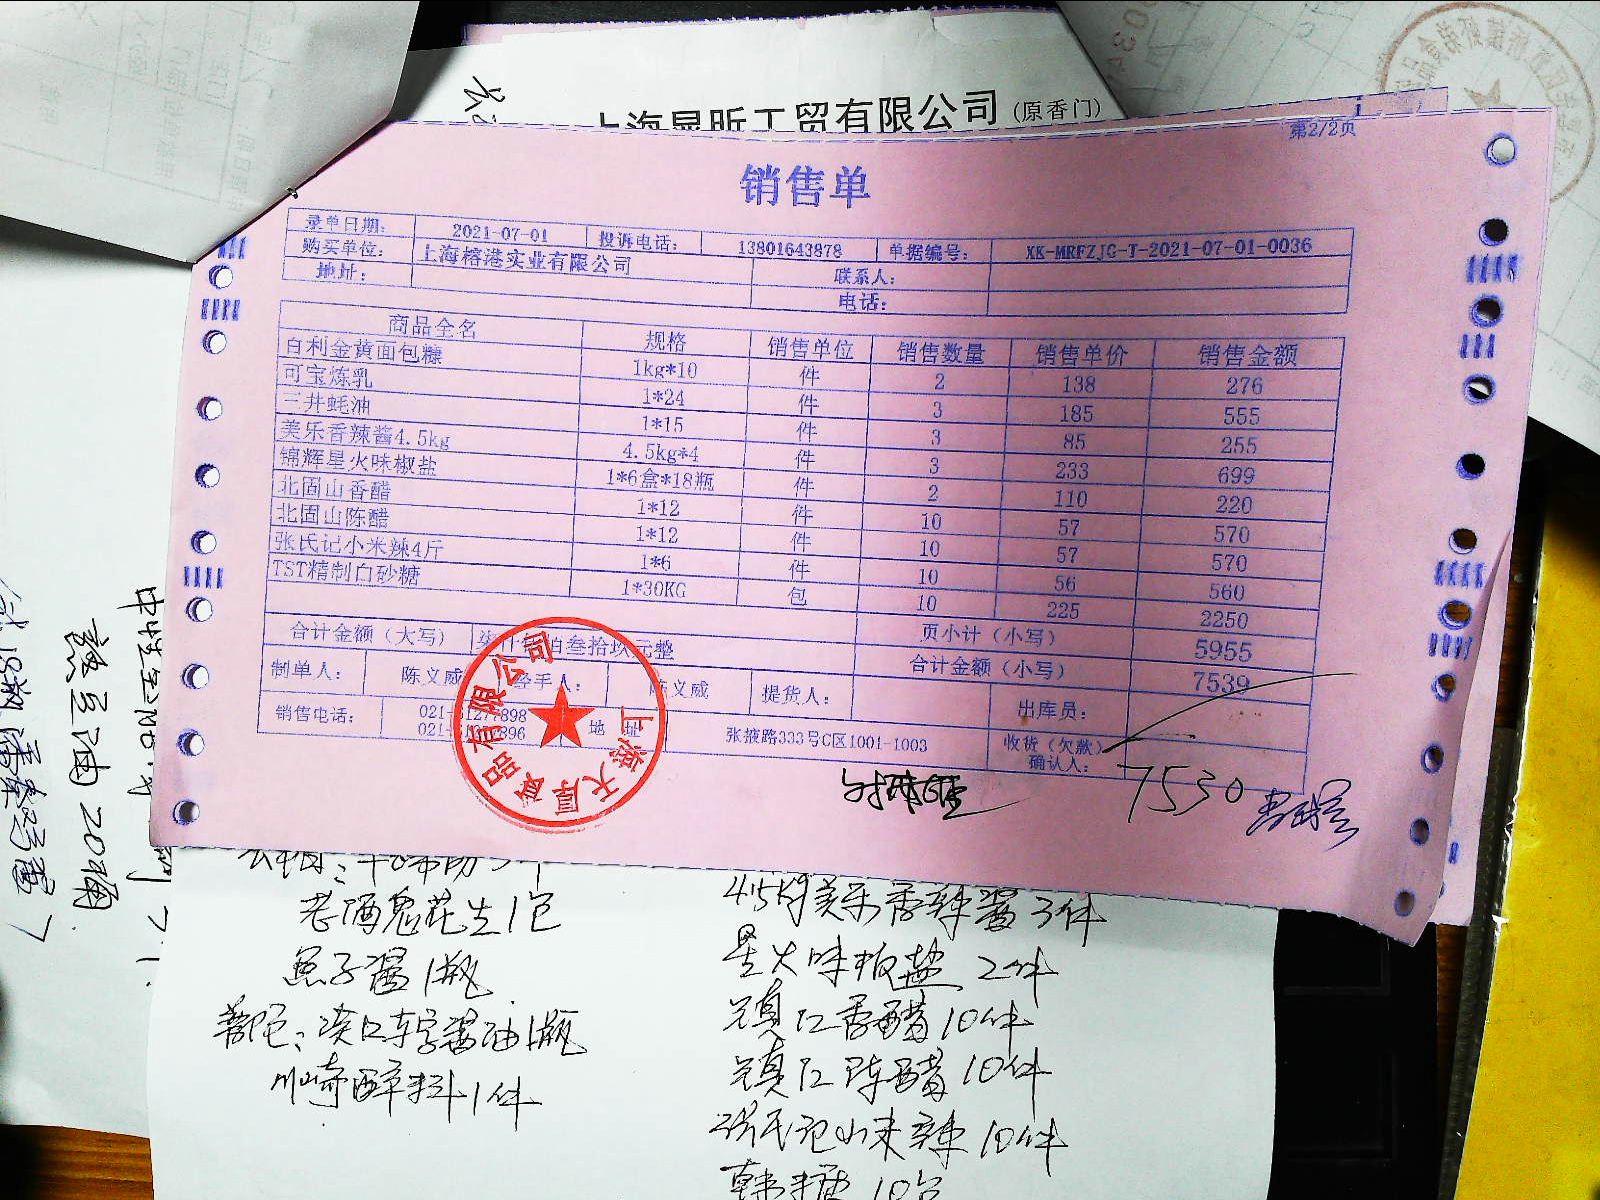 上海显昕工贸有限公司(原香门)
第2/2页
销售单
录单日期: 2021-07-01 投诉电话: 13801643878 单据编号: XK-MRFZJG-T-2021-07-01-0036
购买单位: 上海榕港实业有限公司 联系人:
地址: 电话:
商品全名 规格 销售单位 销售数量 销售单价 销售金额
百利金黄面包糠 1kg*10 件 2 138 276
可宝炼乳 1*24 件 3 185 555
三井蚝油 1*15 件 3 85 255
美乐香辣酱4.5kg 4.5kg*4 件 3 233 699
锦辉星火味椒盐 1*6盒*18瓶 件 2 110 220
北固山香醋 1*12 件 10 57 570
北固山陈醋 1*12 件 10 57 570
张氏记小米辣4斤 1*6 件 10 56 560
TST精制白砂糖 1*30KG 包 10 225 2250
页小计（小写） 5955
合计金额（大写） 柒仟伍佰叁拾玖元整 合计金额（小写） 7539
制单人: 陈义威 经手人: 陈义威 提货人: 出库员:
销售电话: 021-61277898 地 址 张掖路333号C区1001-1003 收货（欠款）
确认人:
7530
老酒鬼花生1包
鱼子酱1瓶
川崎醉料1件
4.5kg美乐香辣酱3件
星火味椒盐2件
镇江香醋10件
镇江陈醋10件
张氏记小米辣10件
韩糖10包